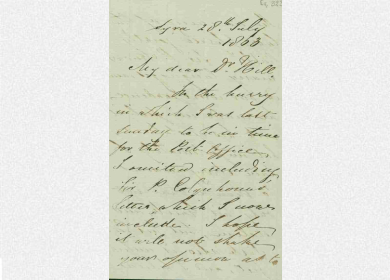 Syra 28th July
1853
My dear Dr. Hill,
In the hurry
in which I was last
Sunday to be in time
for the Post Office,
I omitted including
Sir P. Colquhoun's
letter which I now
include. I hope
it will not shake
your opinion as to